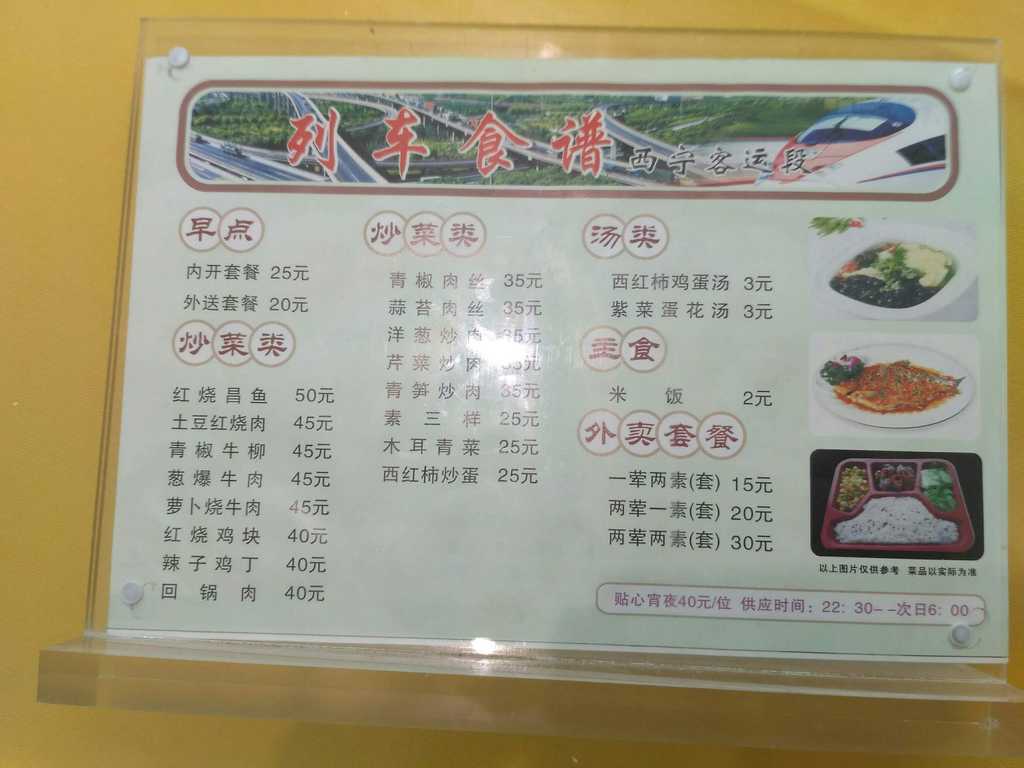 列车食谱 西宁客运段
早点
内开套餐 25元
外送套餐 20元
炒菜类
红烧昌鱼 50元
土豆红烧肉 45元
青椒牛柳 45元
葱爆牛肉 45元
萝卜烧牛肉 45元
红烧鸡块 40元
辣子鸡丁 40元
回锅肉 40元
炒菜类
青椒肉丝 35元
蒜苔肉丝 35元
洋葱炒肉 35元
芹菜炒肉 35元
青笋炒肉 35元
素三样 25元
木耳青菜 25元
西红柿炒蛋 25元
汤类
西红柿鸡蛋汤 3元
紫菜蛋花汤 3元
主食
米饭 2元
外卖套餐
一荤两素(套) 15元
两荤一素(套) 20元
两荤两素(套) 30元
以上图片仅供参考 菜品以实际为准
贴心宵夜40元/位 供应时间：22：30--次日6：00